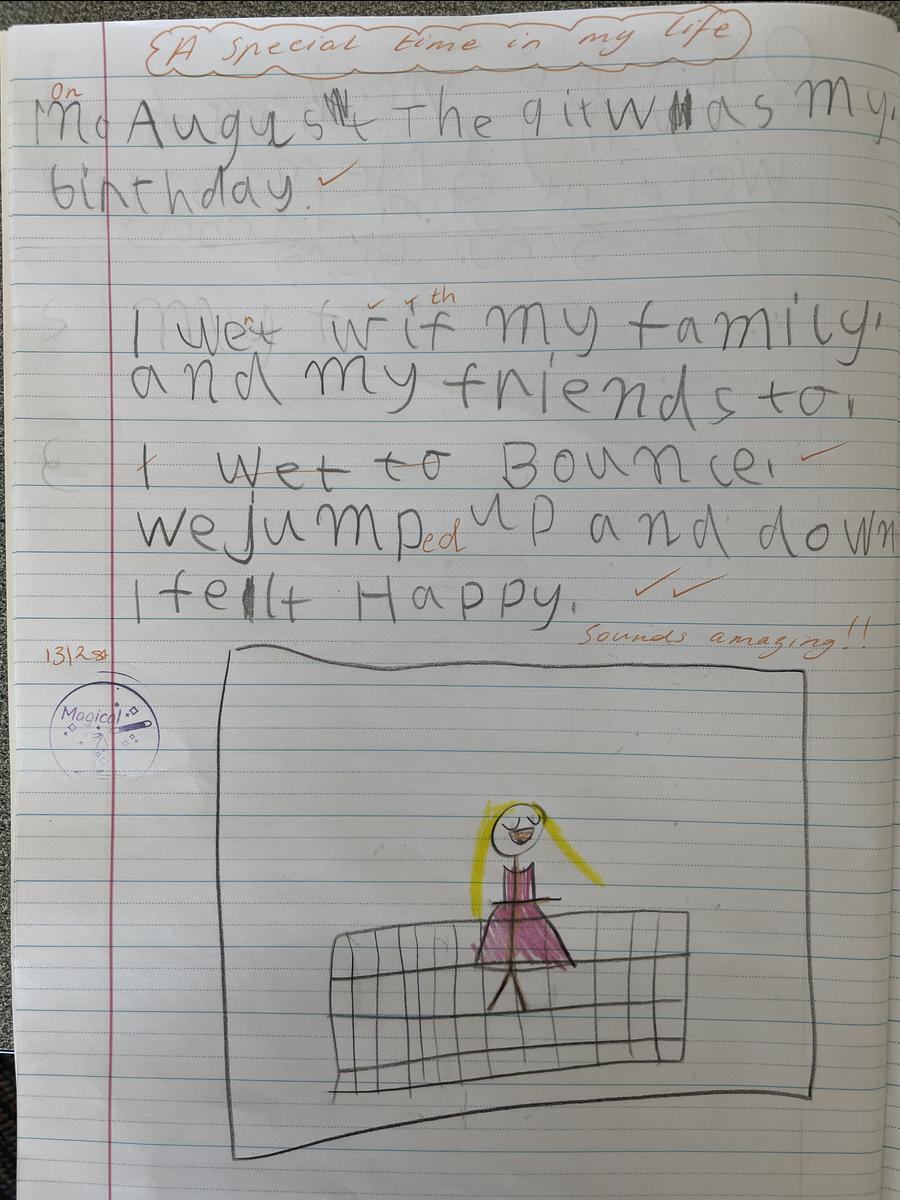 A special time in my life
On
August The 9it was my
birthday.
n th
I wet wit my family,
and my friends to.
I wet to Bounce.
we jumped up and down
I felt Happy.
Sounds amazing!!
Magical